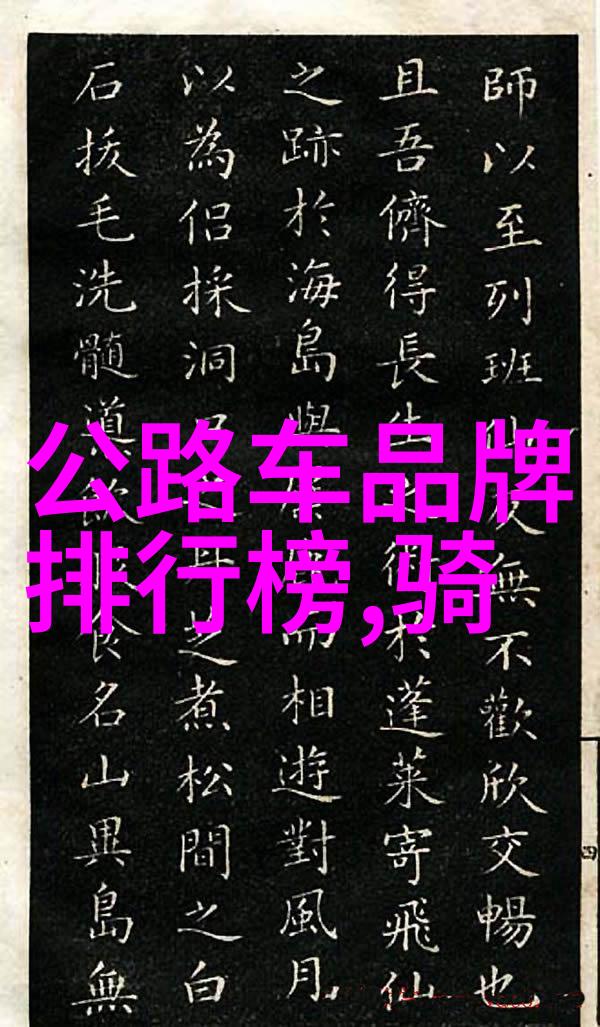 師以至列班仙友無不歡欣交暢也
且吾儕得長生於蓬萊寄飛仙
之跡於海島與而相遊對風月
以為侶採洞之煮松間之白
石拔毛洗髓食名山異島無
公路车品牌
排行榜,骑
四